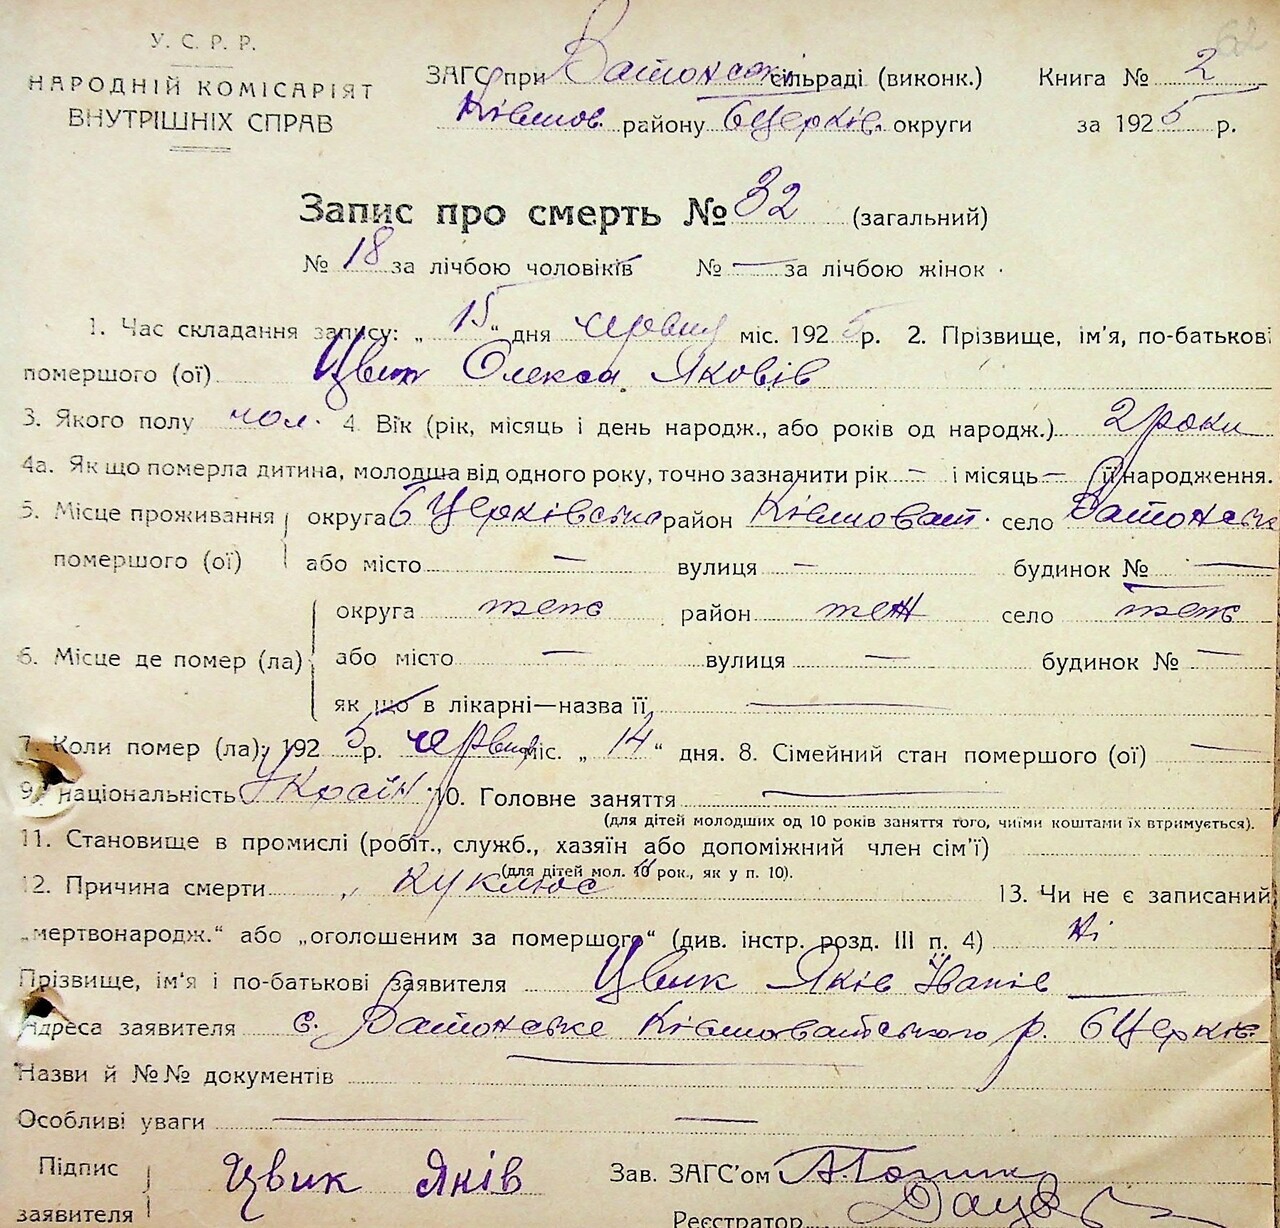 62
У. С. Р. Р.
НАРОДНІЙ КОМІСАРІЯТ
ВНУТРІШНІХ СПРАВ
ЗАГС при Ватонській сільраді (виконк.) Книга № 2
Ківшов. району БЦерків. округи за 1925 р.
Запис про смерть № 32 (загальний)
№ 18 за лічбою чоловіків № — за лічбою жінок
1. Час складання запису: „ 15 “ дня червня міс. 1925 р. 2. Прізвище, ім'я, по-батькові
помершого (ої) Цвик Олекса Яковів
3. Якого полу чол. 4. Вік (рік, місяць і день народж., або років од народж.) 2 роки
4а. Як що померла дитина, молодша від одного року, точно зазначити рік — і місяць — її народження.
5. Місце проживання округа БЦерківська район Ківшоват. село Ватонське
помершого (ої) або місто — вулиця — будинок № —
округа теж район теж село теж
6. Місце де помер (ла) або місто — вулиця — будинок № —
як що в лікарні—назва її —
7. Коли помер (ла): 1925 р. червня міс. „ 14 “ дня. 8. Сімейний стан помершого (ої) —
9. Національність Україн. 10. Головне заняття —
(для дітей молодших од 10 років заняття того, чиїми коштами їх втримується).
11. Становище в промислі (робіт., служб., хазяїн або допоміжний член сім'ї)
(для дітей мол. 10 рок., як у п. 10).
12. Причина смерти куклюс 13. Чи не є записаний
„мертвонародж.“ або „оголошеним за помершого“ (див. інстр. розд. III п. 4) Ні
Прізвище, ім'я і по-батькові заявителя Цвик Яків Іванів —
Адреса заявителя с. Ватонське Ківшоватського р. БЦерків.
Назви й №№ документів —
Особливі уваги — —
Підпис заявителя Цвик Яків Зав. ЗАГС'ом
Реєстратор